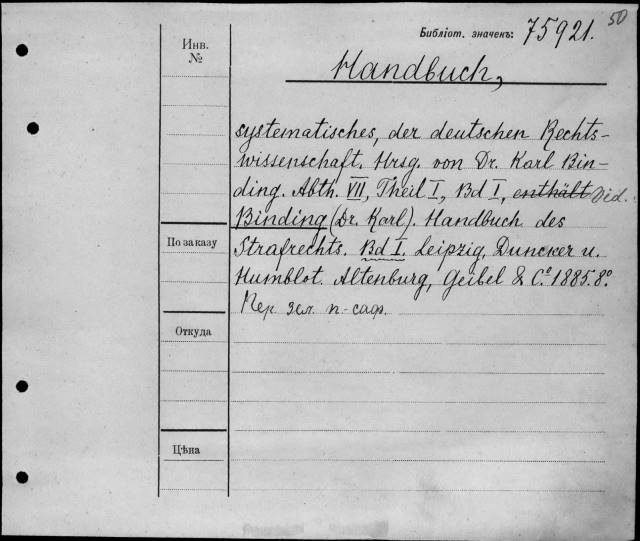 50
Библіот. значекъ: 75921.
Инв.
№
Handbuch,
systematisches, der deutschen Rechts-
wissenschaft. Hrsg. von Dr. Karl Bin-
ding. Abth. VII, Theil I, Bd I, enthält Vid.:
Binding (Dr. Karl). Handbuch des
Strafrechts. Bd I. Leipzig, Duncker u.
Humblot. Altenburg, Geibel & Cº. 1885. 8º.
Пер. зел. п-саф.
По заказу
Откуда
Цѣна